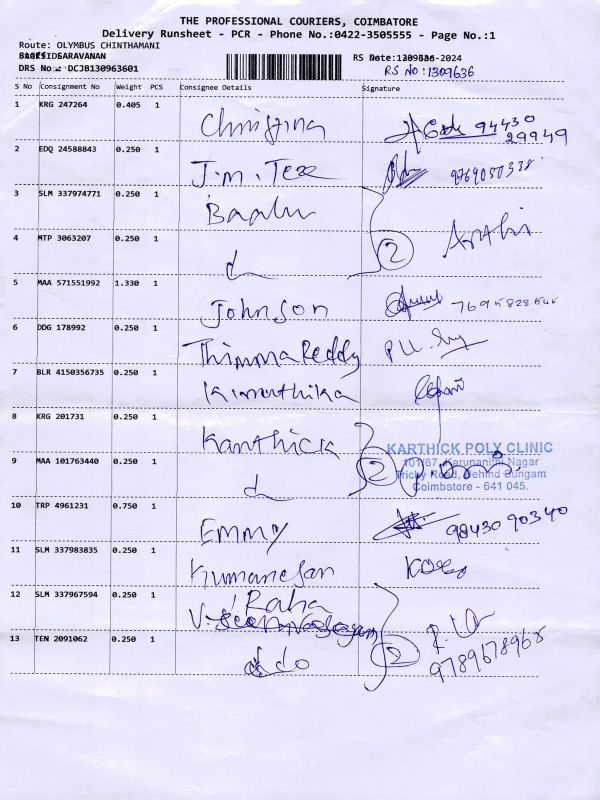 THE PROFESSIONAL COURIERS, COIMBATORE
Delivery Runsheet - PCR - Phone No.:0422-3505555 - Page No.:1
Route: OLYMBUS CHINTHAMANI
SARAVANAN
DRS No : DCJB130963601
RS No: 1309636
S No Consignment No Weight PCS Consignee Details Signature
1 KRG 247264 0.405 1 Christina 94430 29949
2 EDQ 24588843 0.250 1 J.M. Tex
3 SLM 337974771 0.250 1 Baalu
4 MTP 3063207 0.250 1 d 2 Arthi
5 MAA 571551992 1.330 1 Johnson
6 DDG 178992 0.250 1 Thimma Reddy
7 BLR 4150356735 0.250 1 Kiruthika
8 KRG 201731 0.250 1 Karthick
KARTHICK POLY CLINIC
101/67, Karunanithi Nagar
Trichy Road, Behind Sungam
Coimbatore - 641 045.
9 MAA 101763440 0.250 1 d 2
10 TRP 4961231 0.750 1 Emmy 98430 90340
11 SLM 337983835 0.250 1 Kumaresan
12 SLM 337967594 0.250 1 Raha
13 TEN 2091062 0.250 1 ddo 2 9789678968